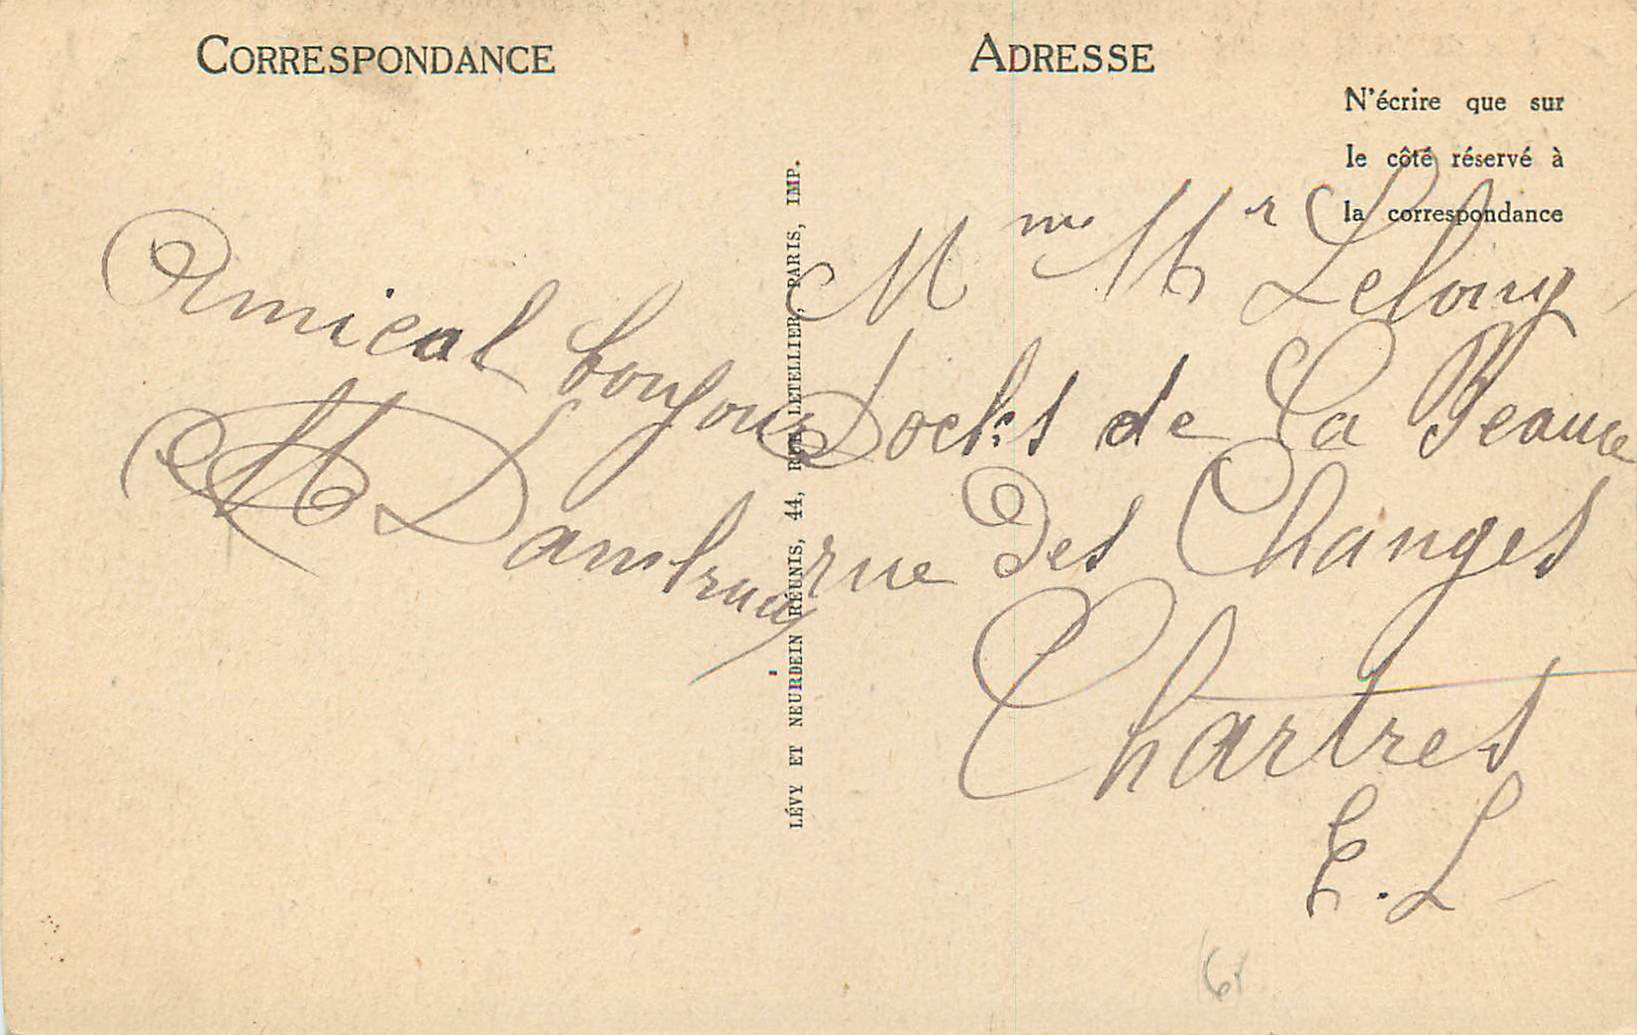 CORRESPONDANCE
Amical bonjour
M Dambrun
LÉVY ET NEURDEIN RÉUNIS, 44, RUE LETELLIER, PARIS, IMP.
ADRESSE
N'écrire que sur
le côté réservé à
la correspondance
Mme Mr Lelong
Docks de La Beauce
rue des Changes
Chartres
E. L